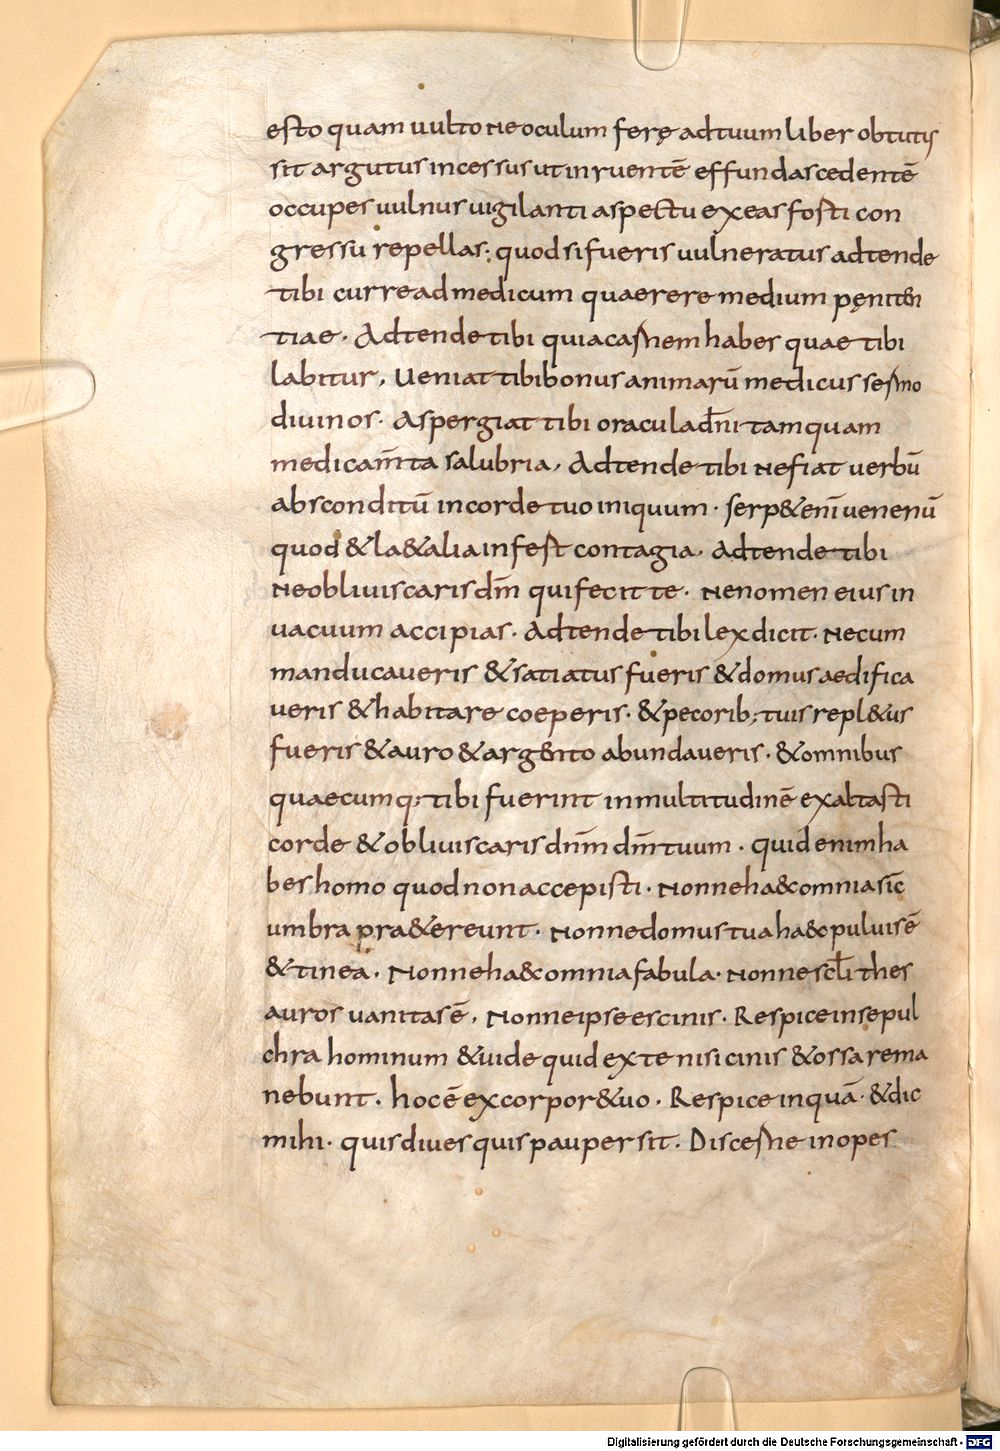 esto quam uultone oculum ferę adtuum liber obtutis
sit argutus incessus ut inruentē effundas cedentē
occupes uulnus uigilanti aspectu exeas fosti con
gressu repellas; quod si fueris uulneratus adtende
tibi curre ad medicum quaerere medium pęniten
tiae. Adtende tibi quia carnem habes quae tibi
labitur, Ueniat tibi bonus animarū medicus sermo
diuinos. Aspergiat tibi oracula dn̄i tamquam
medicam̄ta salubria, Adtende tibi ne fiat uerbū
absconditū in corde tuo iniquum. serp& enī uenenū
quod & la&alia infest contagia. Adtende tibi
ne obliuiscaris dm̄ qui fecit te. Ne nomen eius in
uacuum accipias. Adtende tibi lex dicit. Ne cum
manducaueris & satiatus fueris & domus aedifica
ueris & habitare coeperis. & pecorib; tuis repl&us
fueris & auro & argento abundaueris. & omnibus
quaecumq; tibi fuerint in multitudinē exaltasti
corde & obliuiscaris dnm̄ dm̄ tuum. quid enim ha
bes homo quod non accepisti. Nonne ha&c omnia sic̄
umbra pra&ereunt. Nonne domus tua ha&c puluis ē
& tinea. Nonne ha&c omnia fabula. Nonne scl̄i thes
auros uanitas ē. Nonne ipse es cinis. Respice in sepul
chra hominum & uide quid ex te nisi cinis & ossa rema
nebunt. hoc ē ex corpor& uo. Respice inquā. & dic
mihi. quis diues quis pauper sit. Discerne inopes
Digitalisierung gefördert durch die Deutsche Forschungsgemeinschaft - DFG